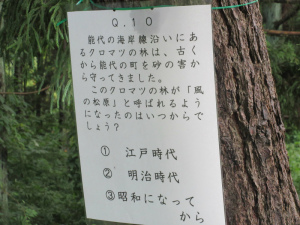 Q.10
能代の海岸線沿いに
あるクロマツの林は、古く
から能代の町を砂の害か
ら守ってきました。
このクロマツの林が「風
の松原」と呼ばれるよう
になったのはいつからで
しょう？
① 江戸時代
② 明治時代
③昭和になって
から